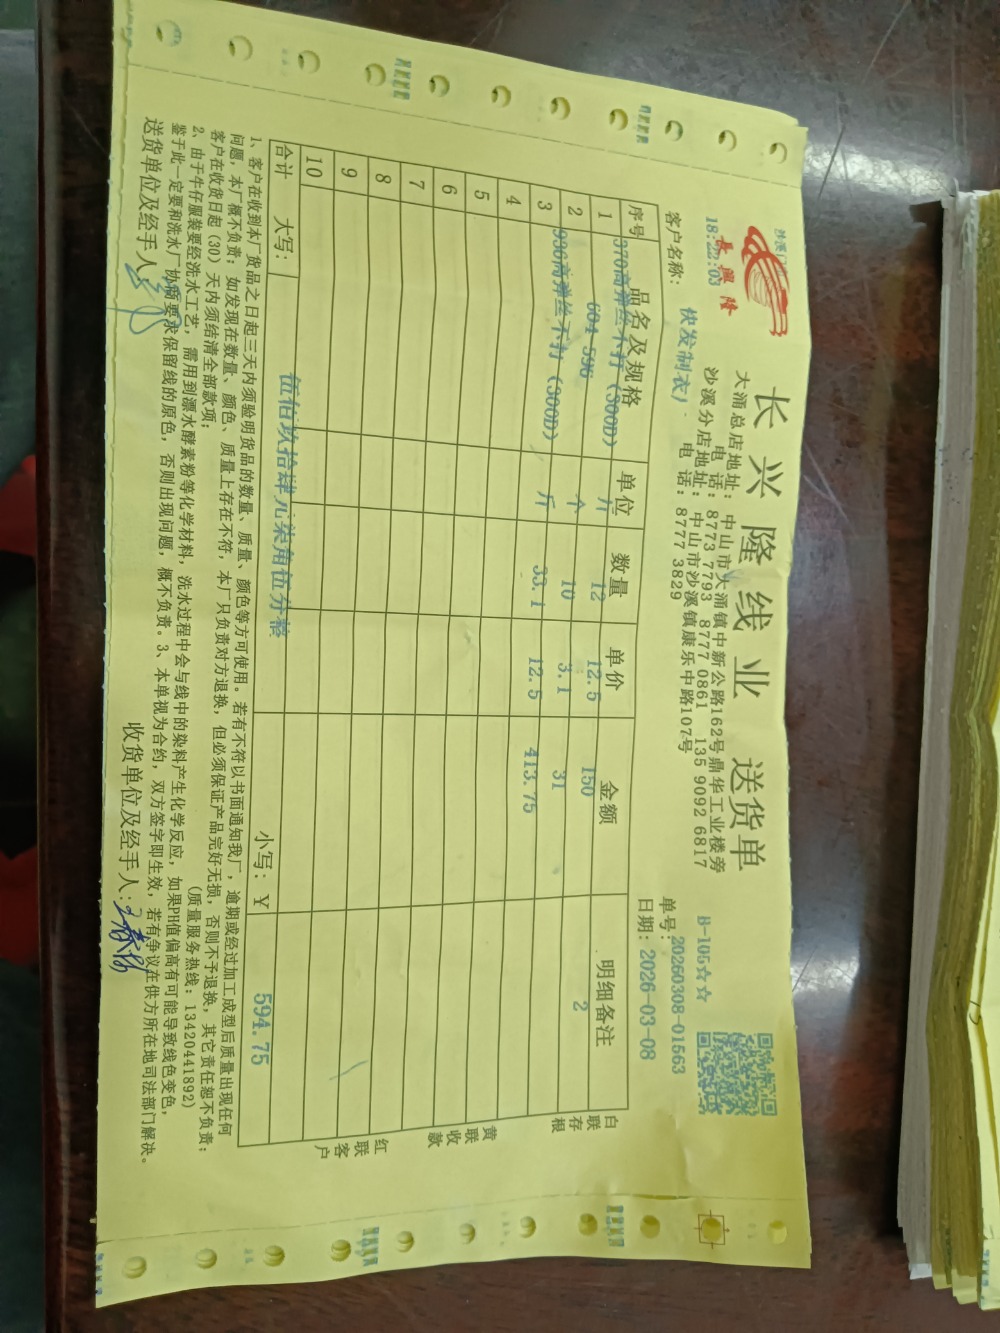 长兴隆线业 送货单
長興隆
18:22:03
B-105☆☆
大涌总店地址：中山市大涌镇中新公路162号鼎华工业楼旁
电 话：8773 7793 8777 0861 135 9092 6817
沙溪分店地址：中山市沙溪镇康乐中路107号
电 话：8777 3829
单号：20260308-01563
客户名称： 快发制衣厂
日期：2026-03-08
序号 品名及规格 单位 数量 单价 金额 明细备注
1 370高弹丝不打（300D） 斤 12 12.5 150 2
2 604-596 个 10 3.1 31
3 936高弹丝不打（300D） 斤 33.1 12.5 413.75
4
5
6
7
8
9
10
合计 大写： 伍佰玖拾肆元柒角伍分整 小写：￥ 594.75
白联存根
黄联收款
红联客户
1、客户在收到本厂货品之日起三天内须验明货品的数量、质量、颜色等方可使用。若有不符以书面通知我厂，逾期或经过加工成型后质量出现任何
问题，本厂概不负责；如发现在数量、颜色、质量上存在不符，本厂只负责对方退换，但必须保证产品完好无损，否则不予退换，其它责任恕不负责；
客户在收货日起（30）天内须结清全部款项；（质量服务热线：13420441892）
2、由于牛仔服装要经洗水工艺，需用到漂水酵素粉等化学材料，洗水过程中会与线中的染料产生化学反应，如果PH值偏高有可能导致线色变色，
鉴于此一定要和洗水厂协商要求保留线的原色，否则出现问题，概不负责。3、本单视为合约，双方签字即生效，若有争议在供方所在地司法部门解决。
送货单位及经手人： 收货单位及经手人：